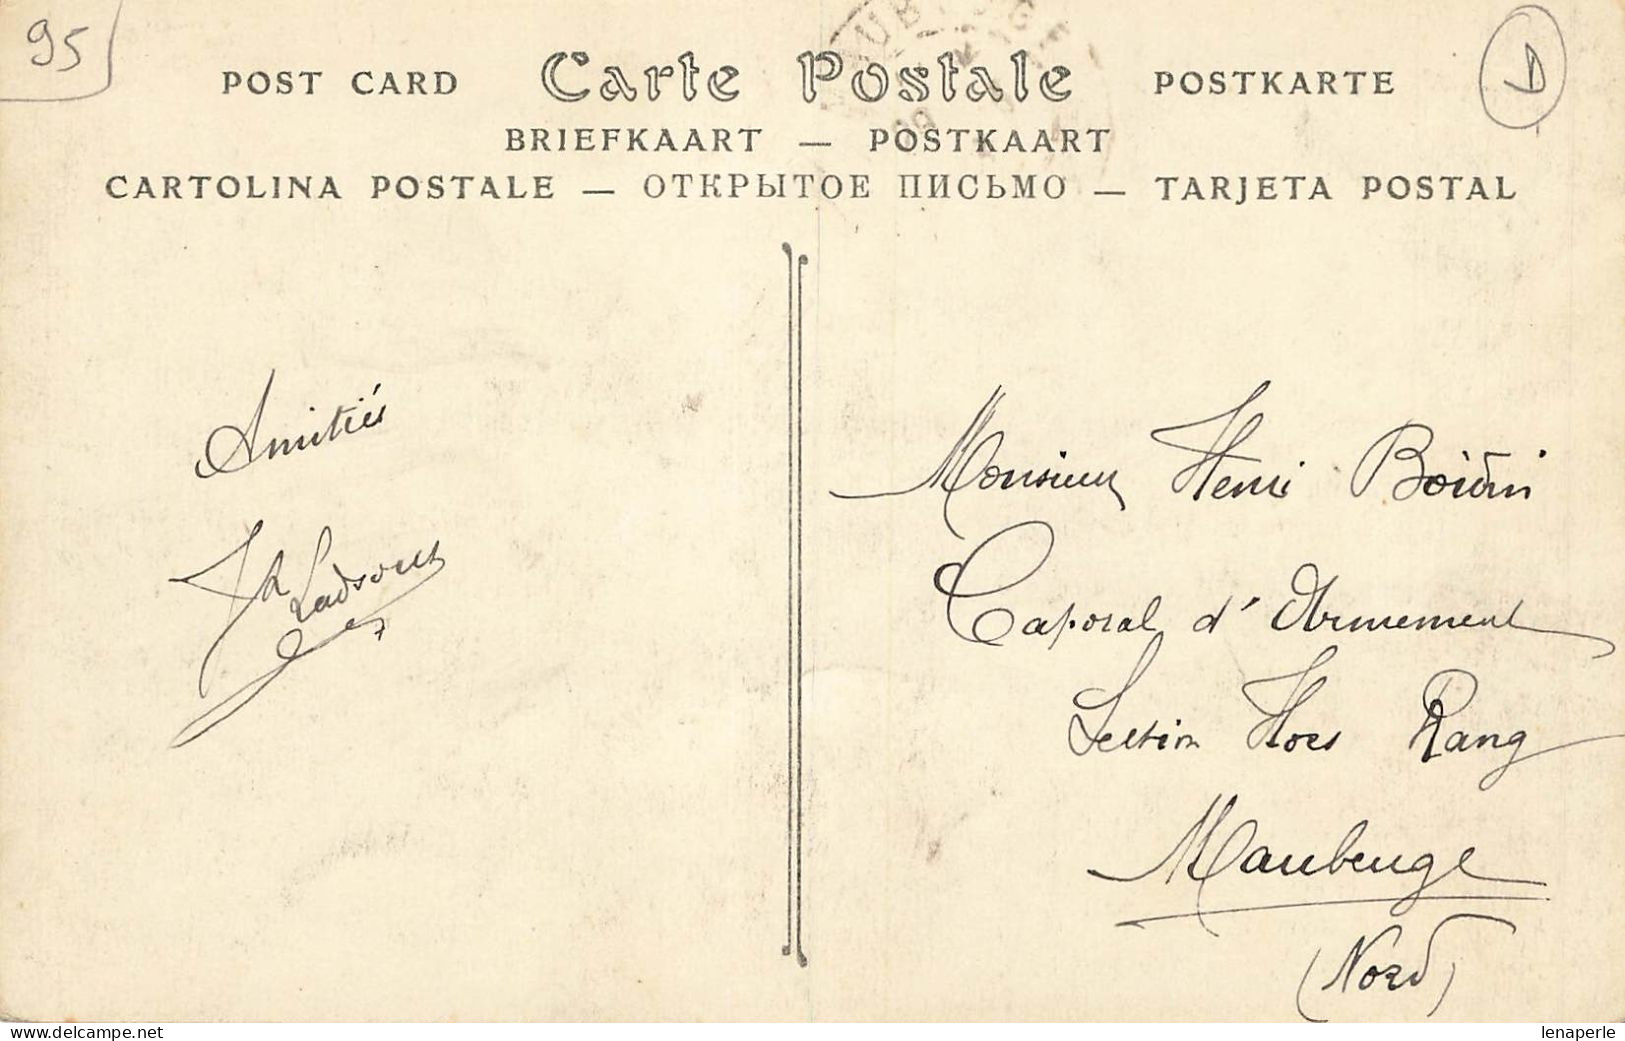 95
D
POST CARD Carte Postale POSTKARTE
BRIEFKAART — POSTKAART
CARTOLINA POSTALE — ОТКРЫТОЕ ПИСЬМО — TARJETA POSTAL
Amitiés
Ladsous
Monsieur Henri Boidin
Caporal d'Armement
Section Hors Rang
Maubeuge
(Nord)
www.delcampe.net
lenaperle